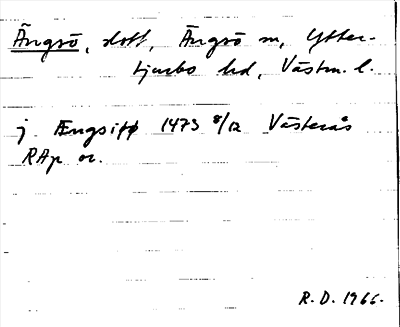 Ängsö, slott, Ängsö sn, Ytter-
tjurbo hd, Västm. l.
j Ængsiø 1473 8/12 Västerås
RAp or.
R.D. 1966.